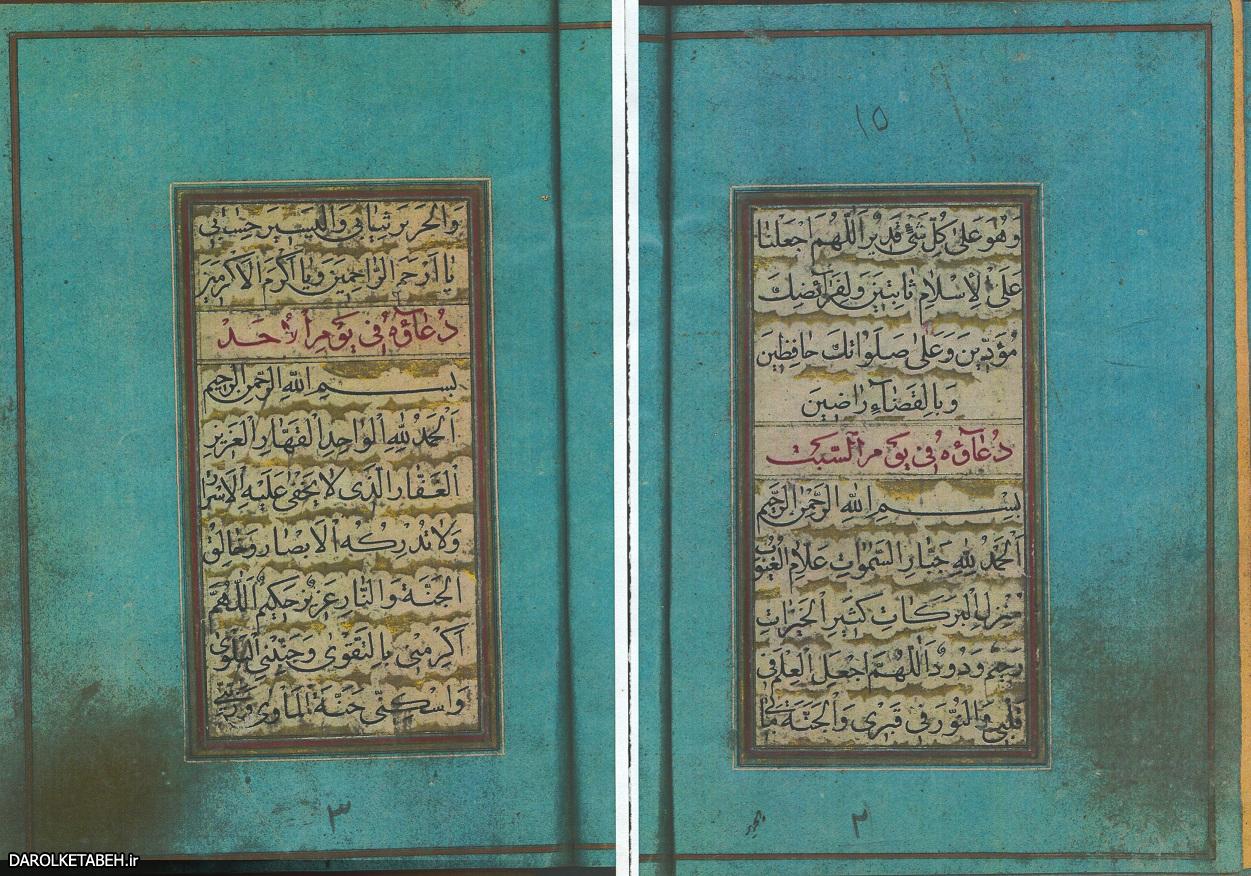 ١٥
وَهُوَ عَلىٰ كُلِّ شَیْ قَدیرٌ اَللّٰهُمَ اجْعَلْنا
عَلَی الْاِسْلامِ ثابِتینَ وَلِفَرآئِضِكَ
مُؤَدّینَ وَعَلىٰ صَلَواتِكَ حافِظینَ
وَبِالقَضآءِ راضینَ
دُعآؤُهُ فی یَوْمِ السَّبتِ
بِسْمِ اللهِ الرَّحْمٰنِ الرَّحیمِ
اَلْحَمْدُ لِلّٰهِ جَبّارِ السَّمٰواتِ عَلّامِ الغُیُوبِ
مُنزِلِ البَرَكاتِ كَثیرِ الخَیراتِ
رَحیمٌ وَدُودٌ اَللّٰهُمَّ اجْعَلِ العِلْمَ فی
قَلْبی وَالنُّورَ فی قَبری وَالجَنَّةَ مَآلی
٢
وَالحَریرَ ثِیابی وَالیَسیرَ حِسابی
یا اَرْحَمَ الرّاحِمینَ وَیا اَكْرَمَ الاَكْرَمینَ
دُعآؤُهُ فی یَوْمِ الْاَحَدْ
بِسْمِ اللهِ الرَّحمٰنِ الرَّحیمِ
اَلْحَمْدُ لِلّٰهِ الْواحِدِ الْقَهّارِ الْعَزیزِ
الْغَفّارِ الَّذی لا یَخفیٰ عَلَیْهِ الْاَسْرارُ
وَلا تُدْرِكُهُ الْاَبْصارُ وَخالِقُ
الْجَنَّةِ وَالنّارِ عَزیزٌ حَكیمٌ اَللّٰهُمَّ
اَكْرِمْنی بِالتَّقْویٰ وَجَنِّبْنی الْبَلْویٰ
وَاَسْكِنّی جَنَّةَ الْمَاْویٰ
٣
DAROLKETABEH.ir